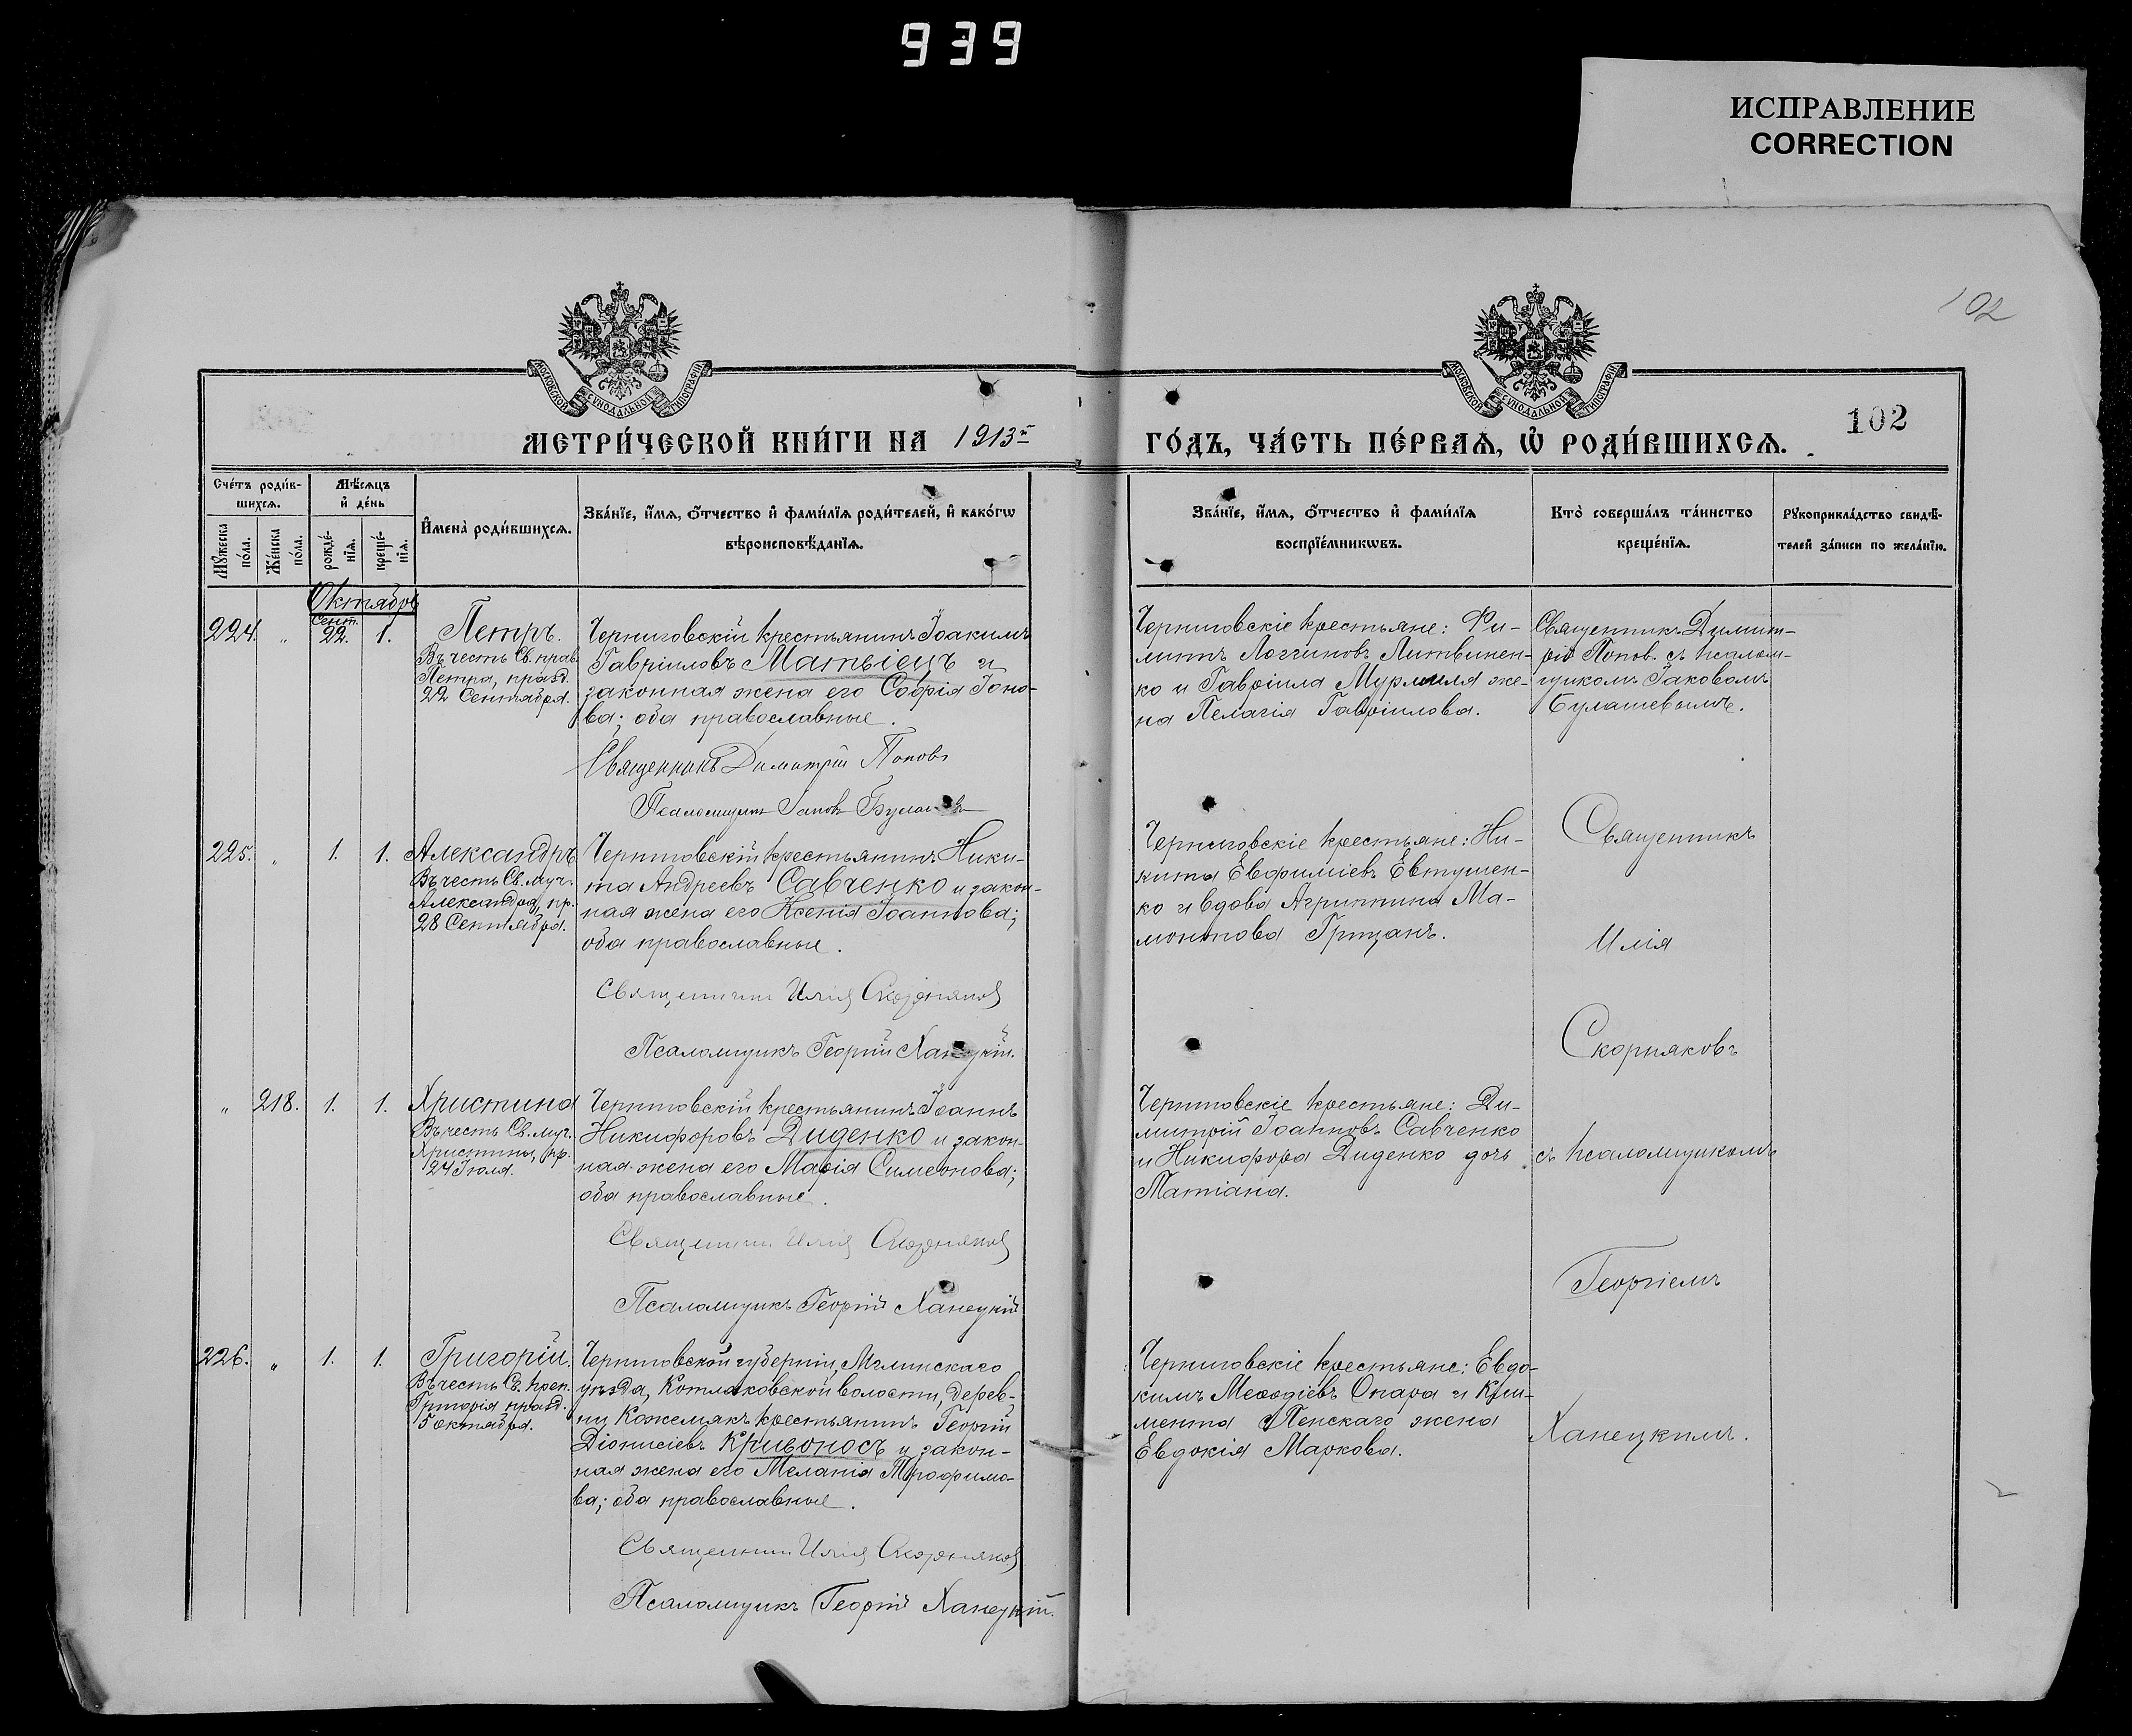 939
ИСПРАВЛЕНИЕ
CORRECTION
102
102
МОСКОВСКОЙ СѴНОДАЛЬНОЙ ТИПОГРАФІИ
МОСКОВСКОЙ СѴНОДАЛЬНОЙ ТИПОГРАФІИ
МЕТРИ́ЧЕСКОЙ КНИ́ГИ НА 1913й
ГО́ДЪ, ЧА́СТЬ ПЕ́РВАѦ, Ѡ҆ РОДИ́ВШИХСѦ.
Сче́тъ роди́в-
шихсѧ.
Мꙋ́жеска по́ла.
Же́нска по́ла.
Мѣ́сѧцъ
и҆ де́нь
рожде́-
нїѧ.
креще́-
нїѧ.
И҆мена̀ роди́вшихсѧ.
Зва́нїе, и҆́мѧ, ѻ҆́тчество и҆ фами́лїѧ роди́телей, и҆ како́гѡ
вѣроисповѣ́данїѧ.
Зва́нїе, и҆́мѧ, ѻ҆́тчество и҆ фами́лїѧ
воспрїе́мникѡвъ.
Кто̀ соверша́лъ та́инство
креще́нїѧ.
Рꙋкоприкла́дство свидѣ́-
телей за́писи по жела́нїю.
Октябрь
224. " Сент. 22. 1.
Петръ.
Въ честь Св. прав.
Петра, празд.
22 Сентября.
Черниговскій крестьянинъ Іоакимъ
Гавріиловъ Матвіецъ и
законная жена его Софія Іоно-
ва; оба православные.
Священникъ Димитрій Поповъ
Псаломщикъ Іаковъ Булашевъ
Черниговскіе крестьяне: Фи-
липпъ Логгиновъ Литвинен-
ко и Гавріила Мурмиля же-
на Пелагія Гавріилова.
Священникъ Димит-
рій Попов. съ псалом-
щикомъ Іаковомъ
Булашевымъ.
225. " 1. 1.
Александръ
Въ честь Св. муч.
Александра, пр.
28 Сентября.
Черниговскій крестьянинъ Ники-
та Андреевъ Савченко и закон-
ная жена его Ксенія Іоаннова;
оба православные.
Священникъ Илія Скорняковъ
Псаломщикъ Георгій Ханецкій.
Черниговскіе крестьяне: Ни-
кита Евфиміевъ Евтушен-
ко и вдова Агриппина Ма-
монтова Грицанъ.
Священникъ
Илія
Скорняковъ
" 218. 1. 1.
Христина
Въ честь Св. муч.
Христины, пр.
24 Іюля.
Черниговскій крестьянинъ Іоаннъ
Никифоровъ Диденко и закон-
ная жена его Марія Симеонова;
оба православные.
Священникъ Илія Скорняковъ
Псаломщикъ Георгій Ханецкій
Черниговскіе крестьяне: Ди-
митрій Іоанновъ Савченко
и Никифора Диденко дочь
Татіана.
съ псаломщикомъ
Георгіемъ
226. " 1. 1.
Григорій.
Въ честь Св. преп.
Григорія празд.
5 октября.
Черниговской губерніи, Мглинскаго
уѣзда, Котляковской волости, дерев-
ни Кожемякъ крестьянинъ Георгій
Діонисіевъ Кривоносъ и закон-
ная жена его Меланія Трофимо-
ва; оба православные.
Священникъ Илія Скорняковъ
Псаломщикъ Георгій Ханецкій.
Черниговскіе крестьяне: Евдо-
кимъ Меѳодіевъ Опара и Кли-
мента Пенскаго жена
Евдокія Маркова.
Ханецкимъ.